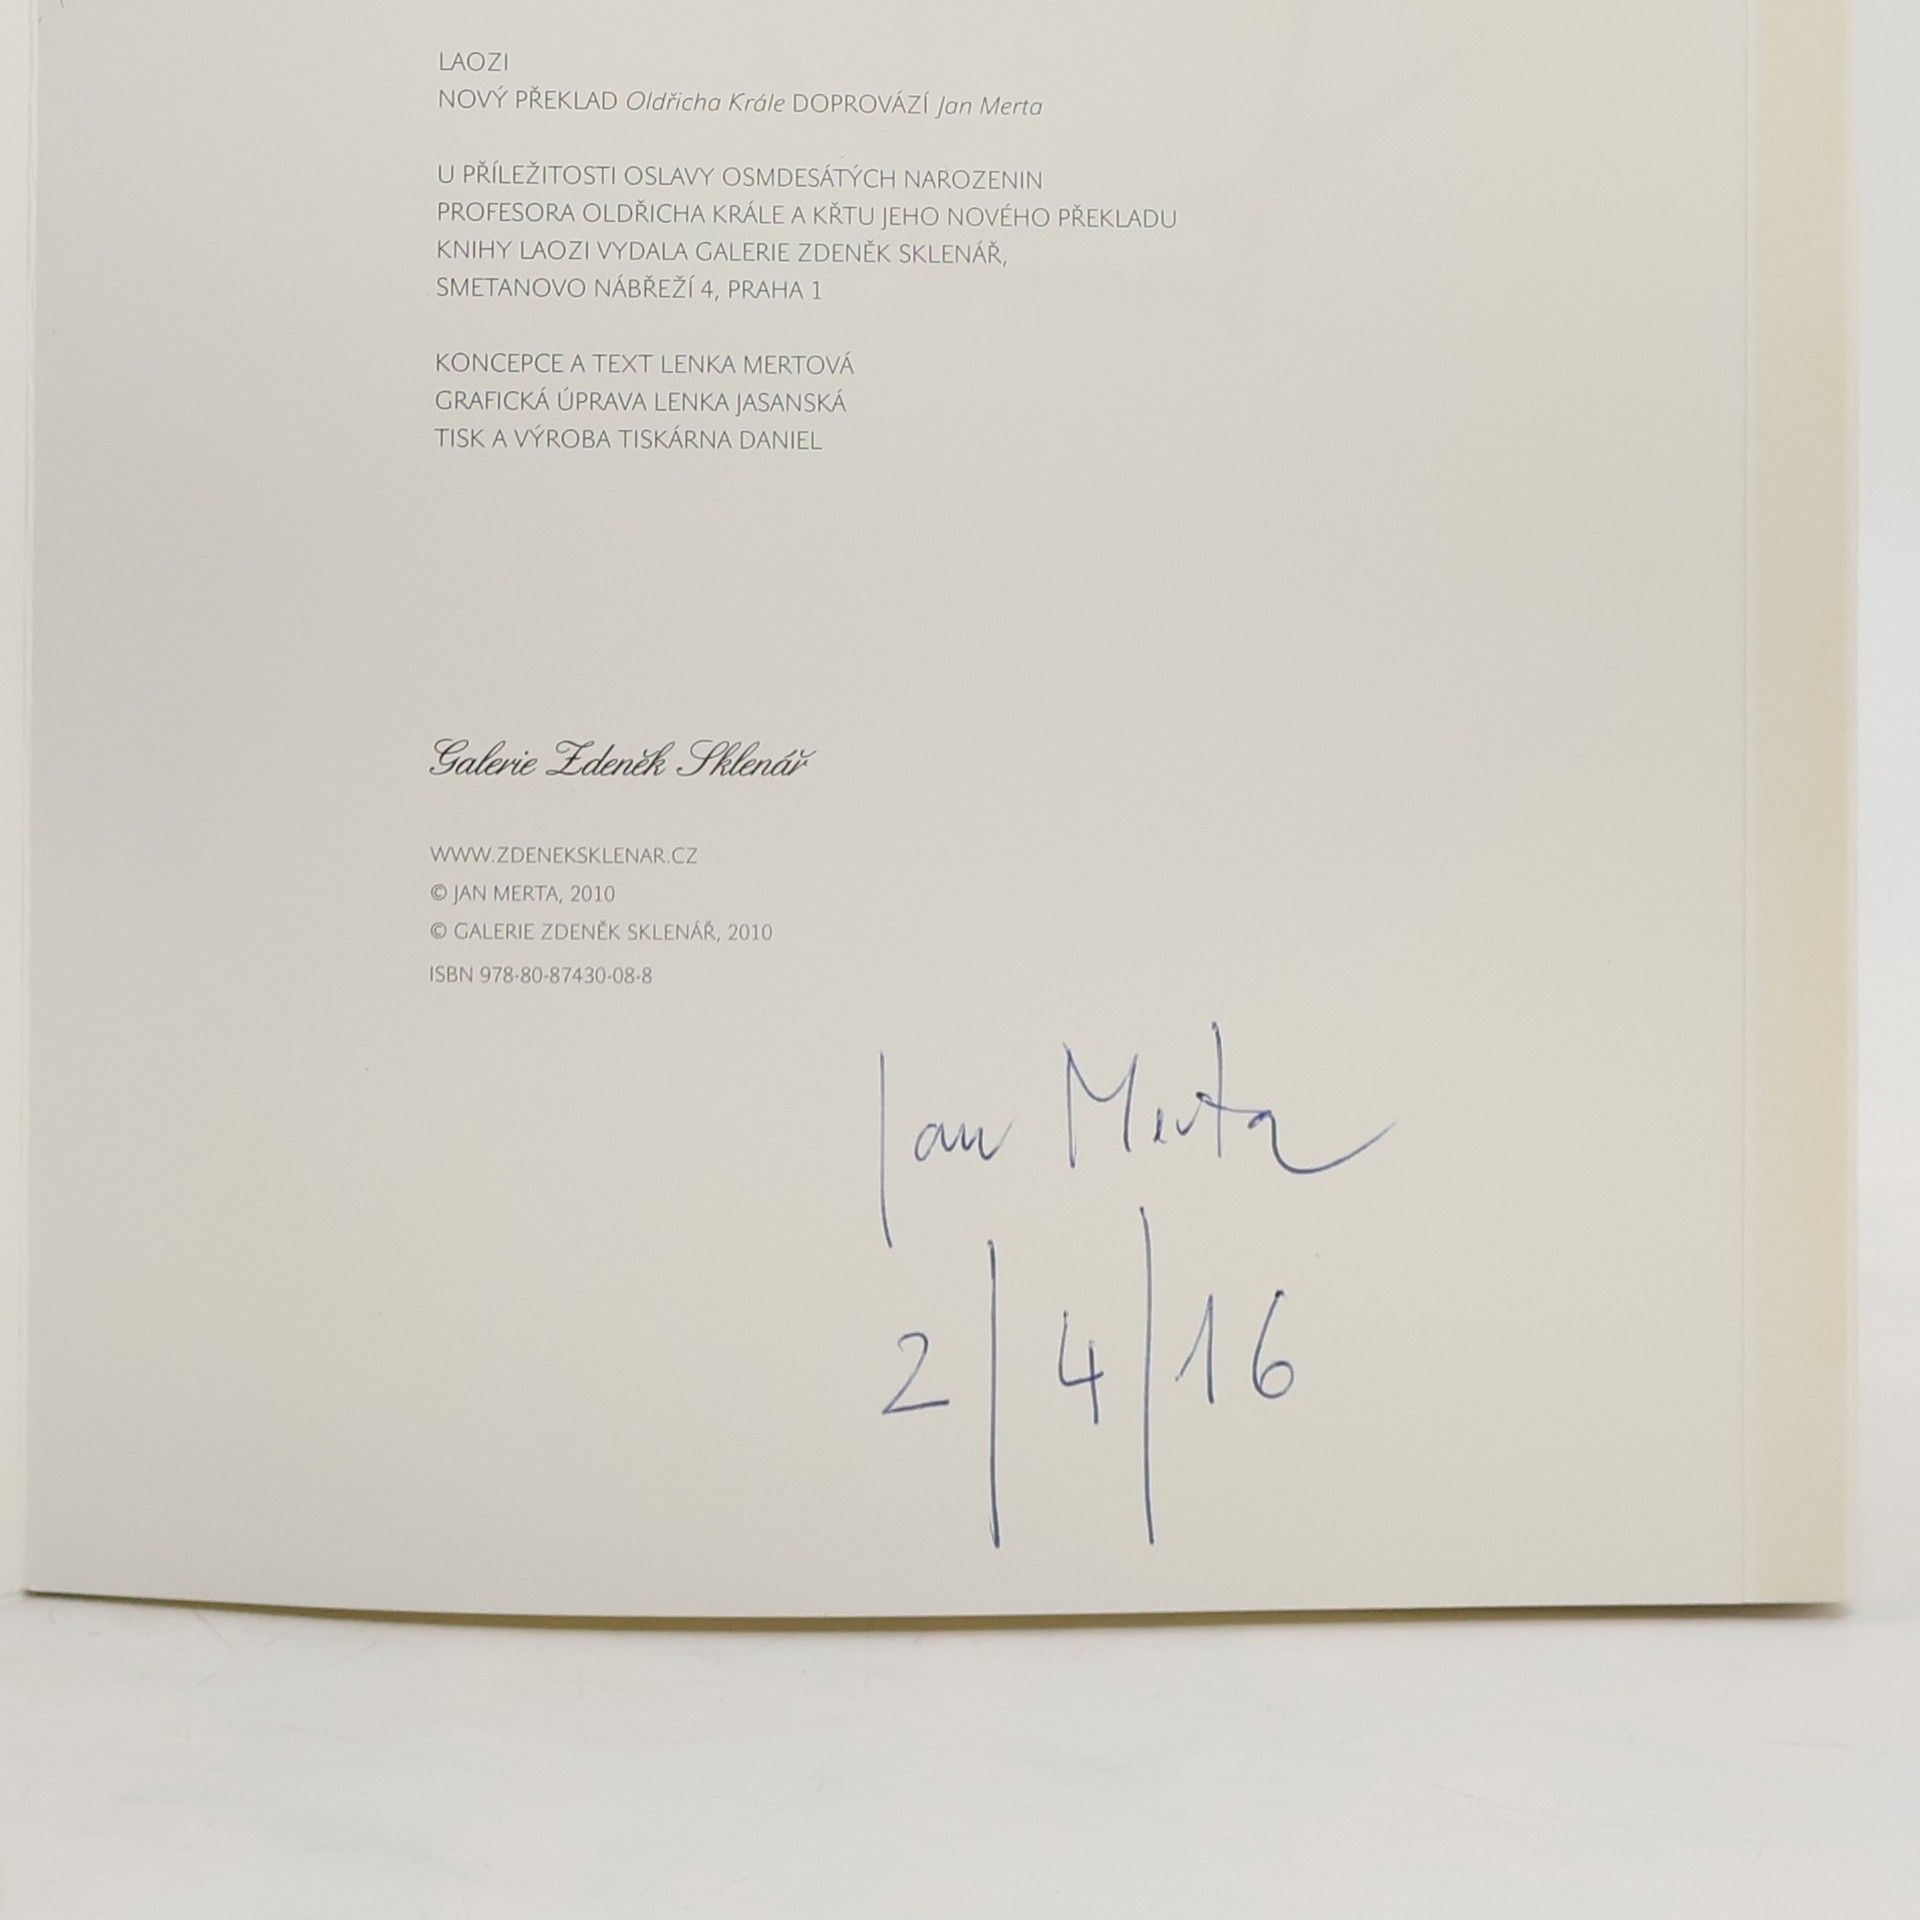 LAOZI
NOVÝ PŘEKLAD Oldřicha Krále DOPROVÁZÍ Jan Merta
U PŘÍLEŽITOSTI OSLAVY OSMDESÁTÝCH NAROZENIN
PROFESORA OLDŘICHA KRÁLE A KŘTU JEHO NOVÉHO PŘEKLADU
KNIHY LAOZI VYDALA GALERIE ZDENĚK SKLENÁŘ,
SMETANOVO NÁBŘEŽÍ 4, PRAHA 1
KONCEPCE A TEXT LENKA MERTOVÁ
GRAFICKÁ ÚPRAVA LENKA JASANSKÁ
TISK A VÝROBA TISKÁRNA DANIEL
Galerie Zdeněk Sklenář
WWW.ZDENEKSKLENAR.CZ
© JAN MERTA, 2010
© GALERIE ZDENĚK SKLENÁŘ, 2010
ISBN 978-80-87430-08-8
Jan Merta
2/4/16